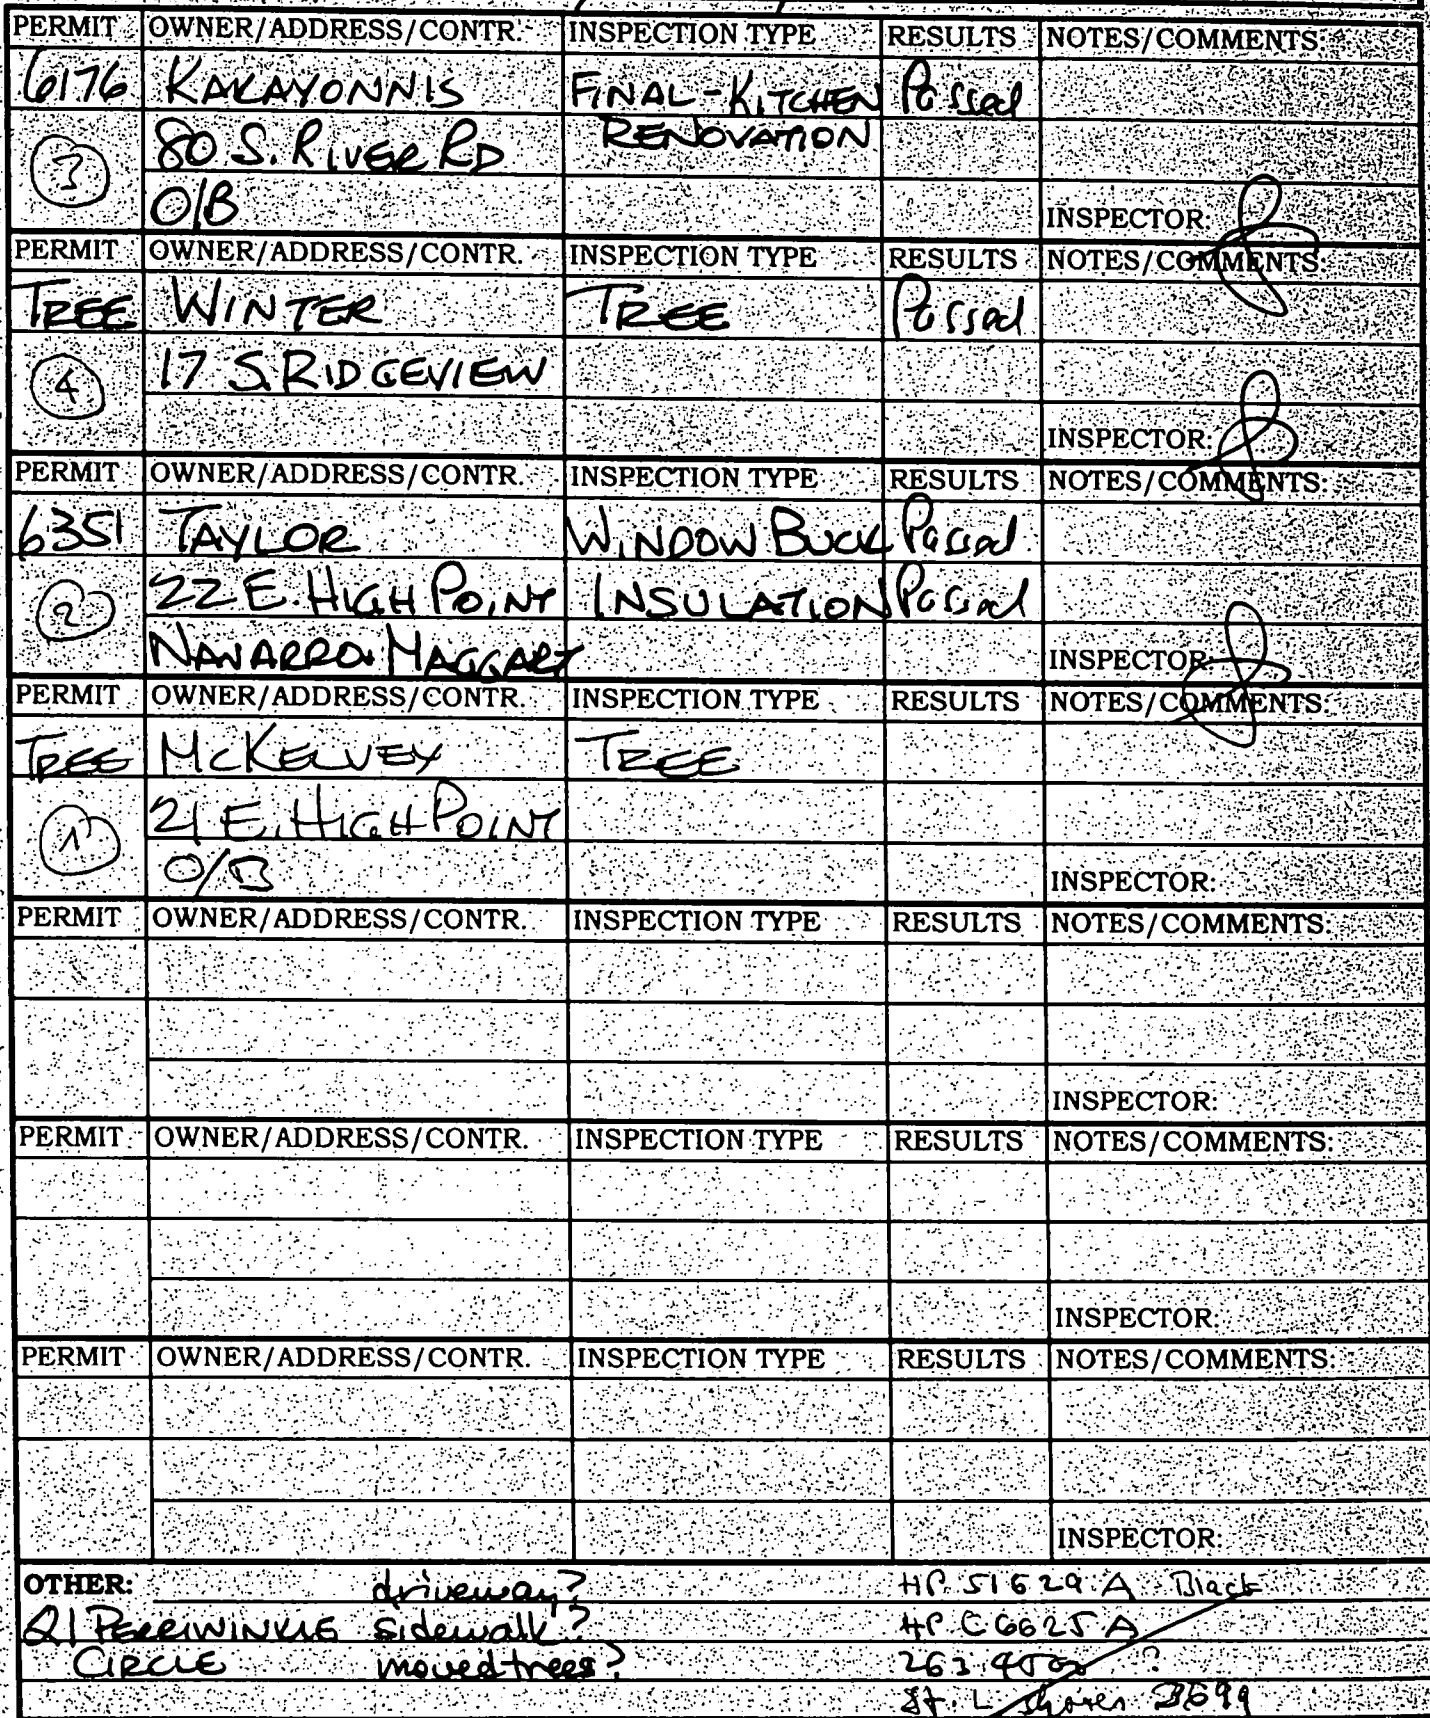 PERMIT OWNER/ADDRESS/CONTR. INSPECTION TYPE RESULTS NOTES/COMMENTS:
6176 KAKAYONNIS FINAL-KITCHEN Passed
3 80 S. RIVER RD RENOVATION
O/B INSPECTOR:
PERMIT OWNER/ADDRESS/CONTR. INSPECTION TYPE RESULTS NOTES/COMMENTS:
TREE WINTER TREE Passed
4 17 S. RIDGEVIEW
INSPECTOR:
PERMIT OWNER/ADDRESS/CONTR. INSPECTION TYPE RESULTS NOTES/COMMENTS:
6351 TAYLOR WINDOW BUCK Passed
2 22 E. HIGH POINT INSULATION Passed
NAVARRO. MAGGART INSPECTOR:
PERMIT OWNER/ADDRESS/CONTR. INSPECTION TYPE RESULTS NOTES/COMMENTS:
TREE MCKELVEY TREE
1 21 E. HIGH POINT
O/B INSPECTOR:
PERMIT OWNER/ADDRESS/CONTR. INSPECTION TYPE RESULTS NOTES/COMMENTS:
INSPECTOR:
PERMIT OWNER/ADDRESS/CONTR. INSPECTION TYPE RESULTS NOTES/COMMENTS:
INSPECTOR:
PERMIT OWNER/ADDRESS/CONTR. INSPECTION TYPE RESULTS NOTES/COMMENTS:
INSPECTOR:
OTHER: driveway? HP 51629 A Black
21 PERRIWINKLE sidewalk? HP C6625A
CIRCLE moved trees? 263 ?
St. L 3699